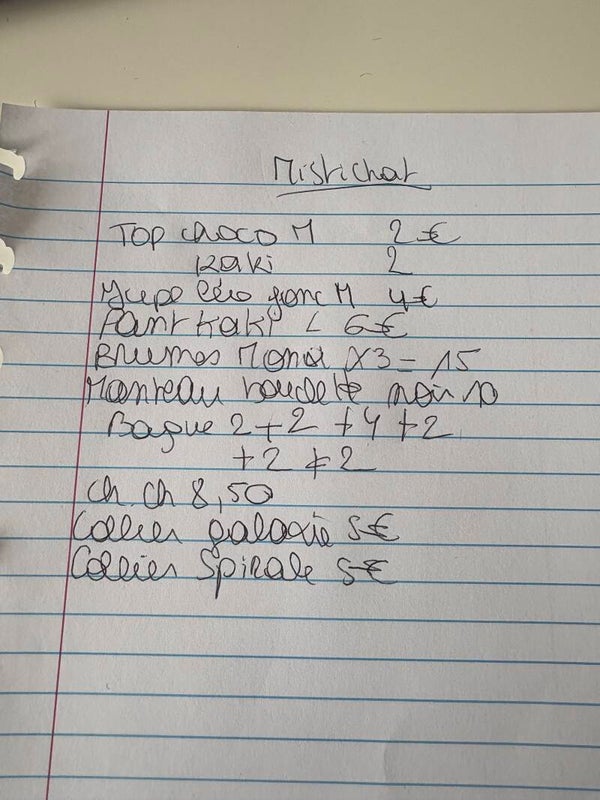 Mistichat
Top choco M 2 €
Kaki 2
Jupe léo fonc M 4€
Pant Kaki L 6€
Brumes Monoï X3 = 15
Manteau noir 10
Bague 2 + 2 + 4 + 2
+ 2 + 2
Ch. Ch 8,50
Collier galaxie 5€
Collier Spirale 5€